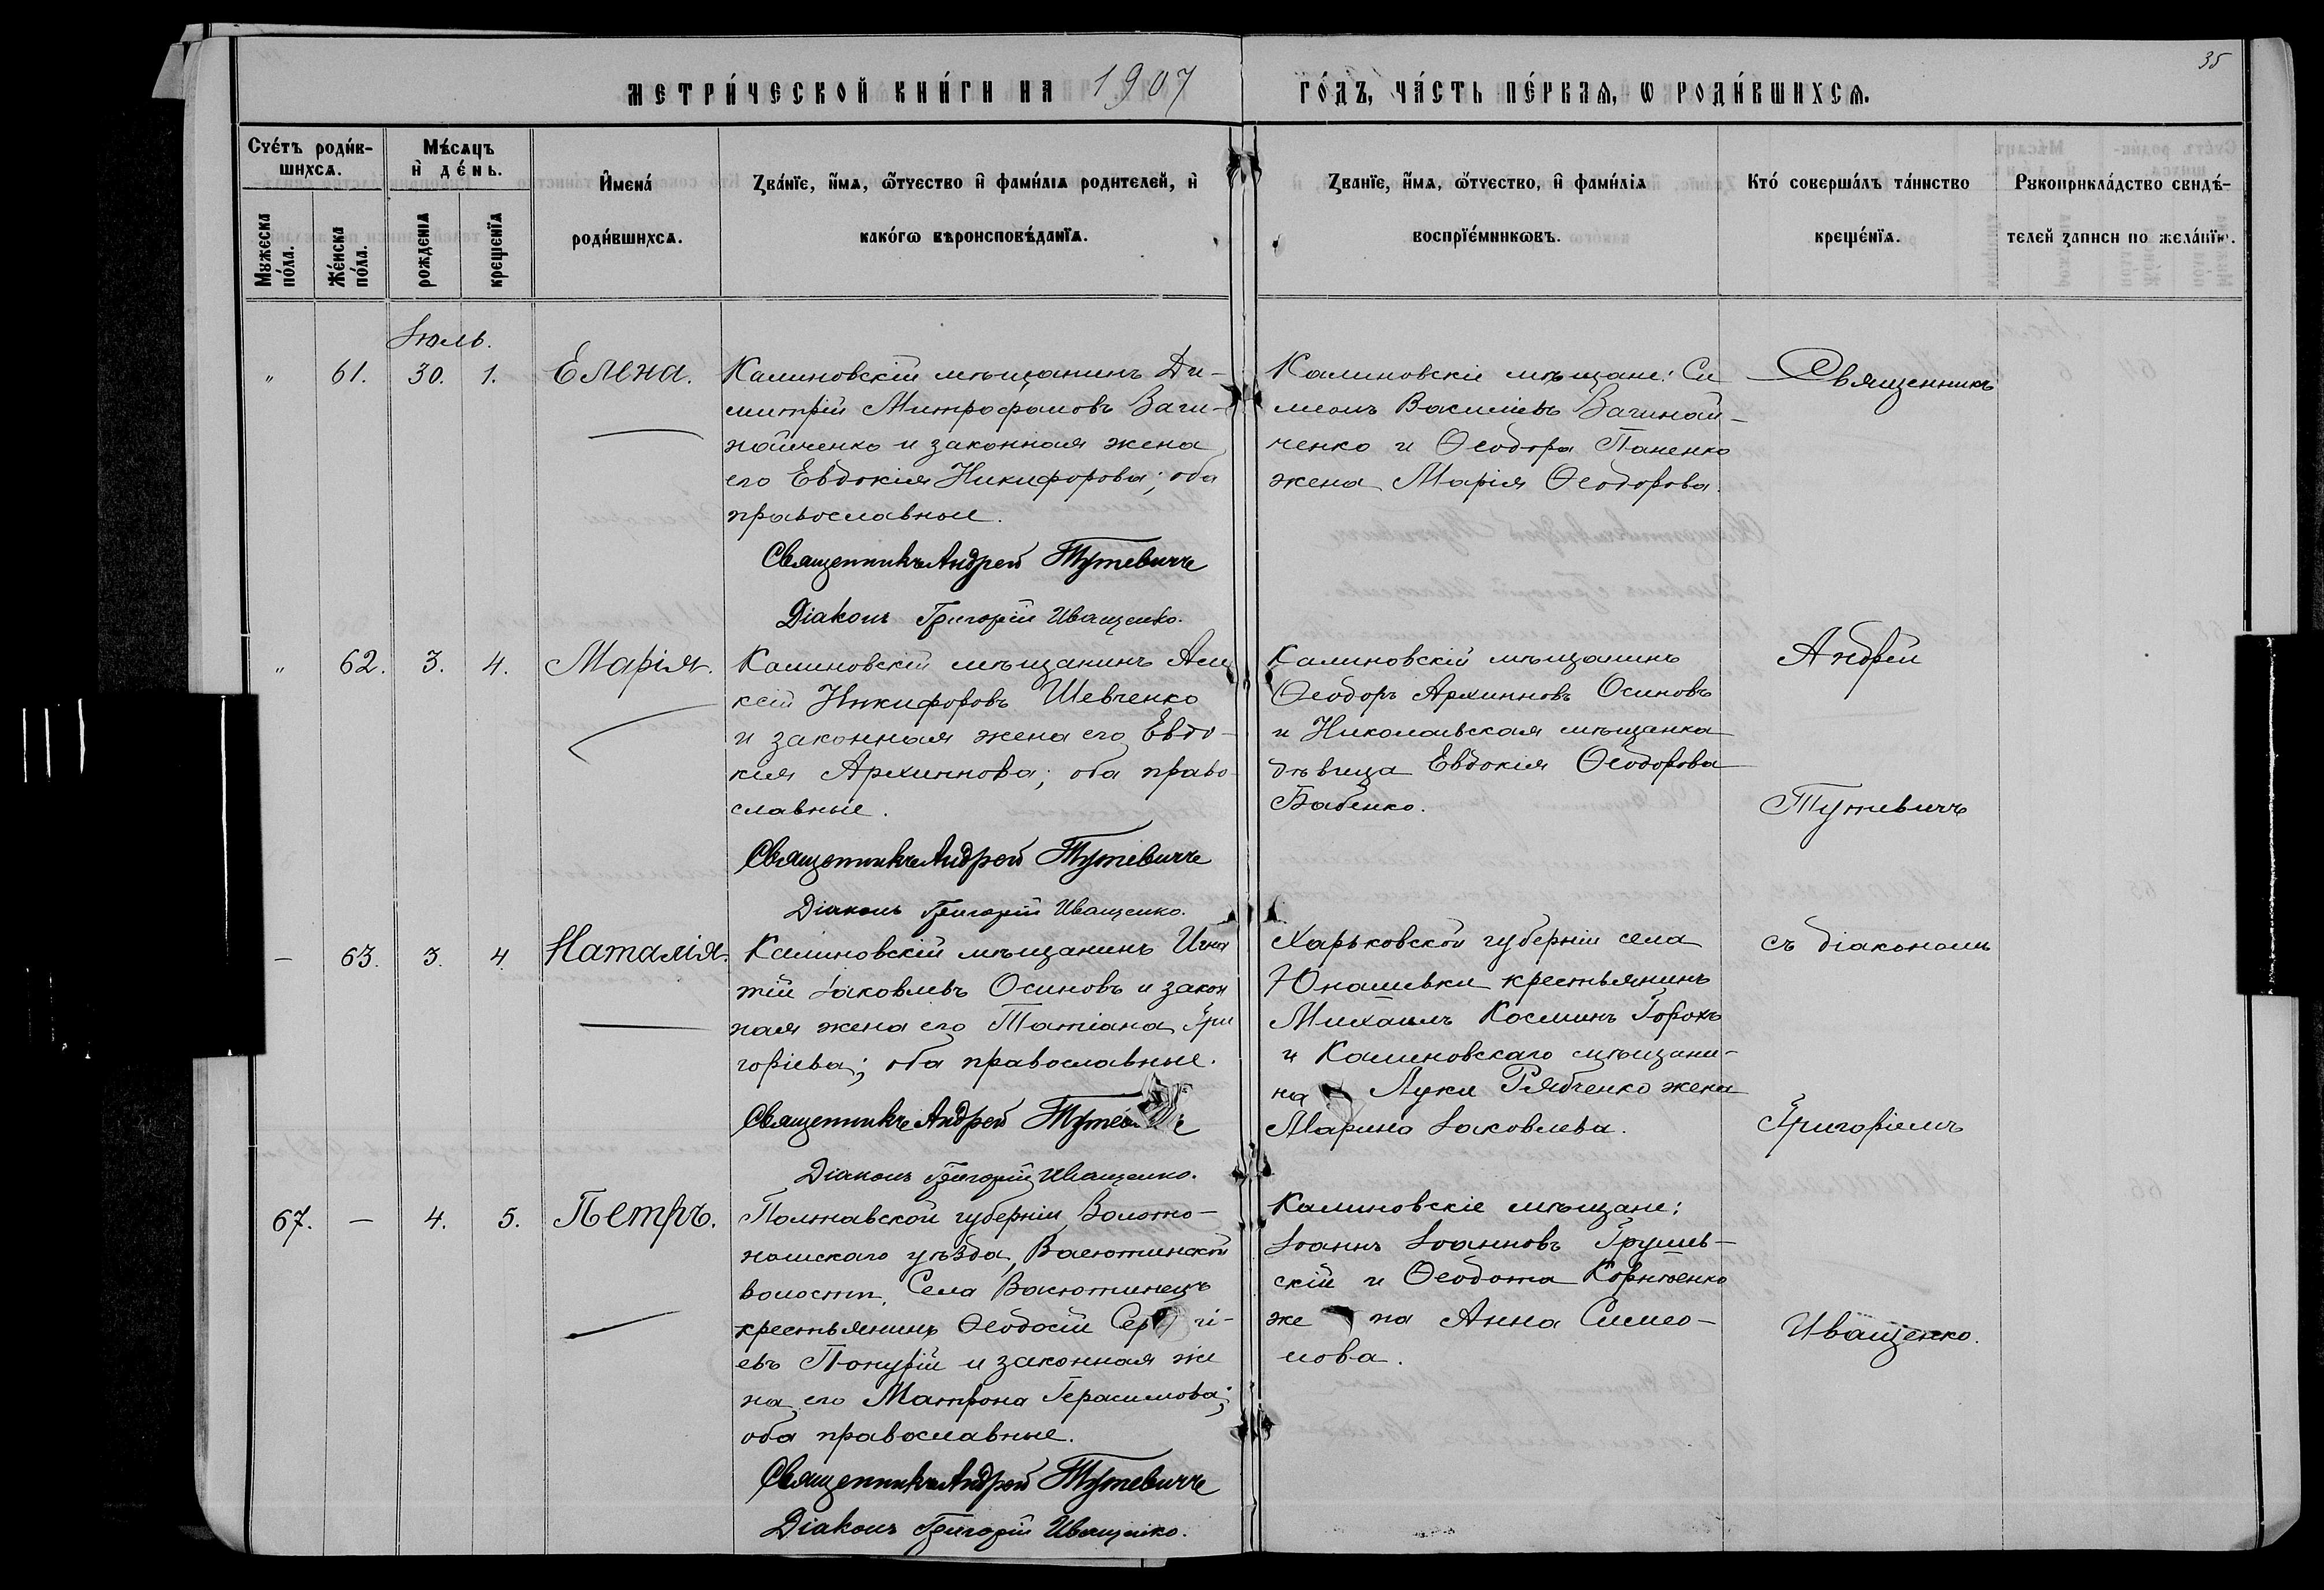 35
МЕТРИ́ЧЕСКОЙ КНИ́ГИ НА 1907 ГО́ДЪ, ЧА́СТЬ ПЕ́РВАѦ, Ѡ РОДИ́ВШИХСѦ.
Сче́тъ роди́в-
шихсѧ.
Мꙋжеска по́ла.
Же́нска по́ла.
Мѣ́сѧцъ
и де́нь.
рожденїѧ
крещенїѧ
И҆мена́
роди́вшихсѧ.
Зва́нїе, и҆́мѧ, ѻ҆́тчество и҆ фами́лїѧ родителей, и҆
како́гѡ вѣроисповѣ́данїѧ.
Званїе, и҆́мѧ, ѻ҆́тчество, и҆ фами́лїѧ
воспрїе́мникѡвъ.
Кто́ соверша́лъ та́инство
креще́нїѧ.
Рꙋкоприкла́дство свидѣ́-
телей записи по жела́нїю.
Іюль.
" 61. 30. 1. Елена.
Калиновскій мѣщанинъ Ди-
митрій Митрофановъ Вачи-
найченко и законная жена
его Евдокія Никифорова; оба
православные.
Священникъ Андрей Тутевичъ
Діаконъ Григорій Иващенко.
Калиновскіе мѣщане: Си
меонъ Василіевъ Вачинай-
ченко и Ѳеодора Паненко
жена Марія Ѳеодорова.
Священникъ
" 62. 3. 4. Марія.
Калиновскій мѣщанинъ Але
ксій Никифоровъ Шевченко
и законная жена его Евдо-
кія Архиппова; оба право-
славные.
Священникъ Андрей Тутевичъ
Діаконъ Григорій Иващенко.
Калиновскій мѣщанинъ
Ѳеодоръ Архипповъ Осиповъ
и Николаевская мѣщанка
дѣвица Евдокія Ѳеодорова
Бабенко.
Андрей
Тутевичъ
— 63. 3. 4 Наталія.
Калиновскій мѣщанинъ Игна
тій Іаковлевъ Осиповъ и закон
ная жена его Татіана Гри
горіева; оба православные.
Священникъ Андрей
Діаконъ Григорій Иващенко.
Харьковской губерніи села
Юнашевки крестьянинъ
Михаилъ Косминъ Горохъ
и Калиновскаго мѣщани-
на Луки Рябченко жена
Марина Іаковлева.
съ діакономъ
Григоріемъ
67. — 4. 5. Петръ.
Полтавской губерніи, Золото-
ношскаго уѣзда, Васютинской
волости, Села Васютинецъ
крестьянинъ Ѳеодосій Сергі-
евъ и законная же
на его Матрона Герасимова;
оба православные.
Священникъ Андрей Тутевичъ
Діаконъ Григорій Иващенко.
Калиновскіе мѣщане:
Іоаннъ Іоанновъ Грушев-
скій и Ѳеодота Корнѣенко
же на Анна Симео-
нова.
Иващенко.